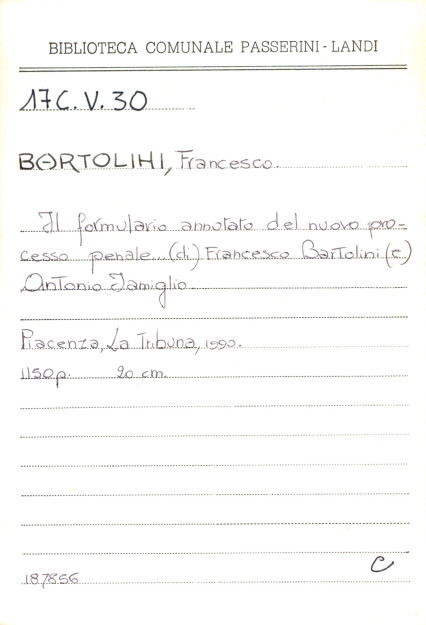 BIBLIOTECA COMUNALE PASSERINI-LANDI
17C.V.30
BARTOLINI, Francesco.
Il formulario annotato del nuovo pro-
cesso penale... (di) Francesco Bartolini (e)
Antonio Iamiglio
Piacenza, La Tribuna, 1990.
1150p. 20 cm.
C
187856